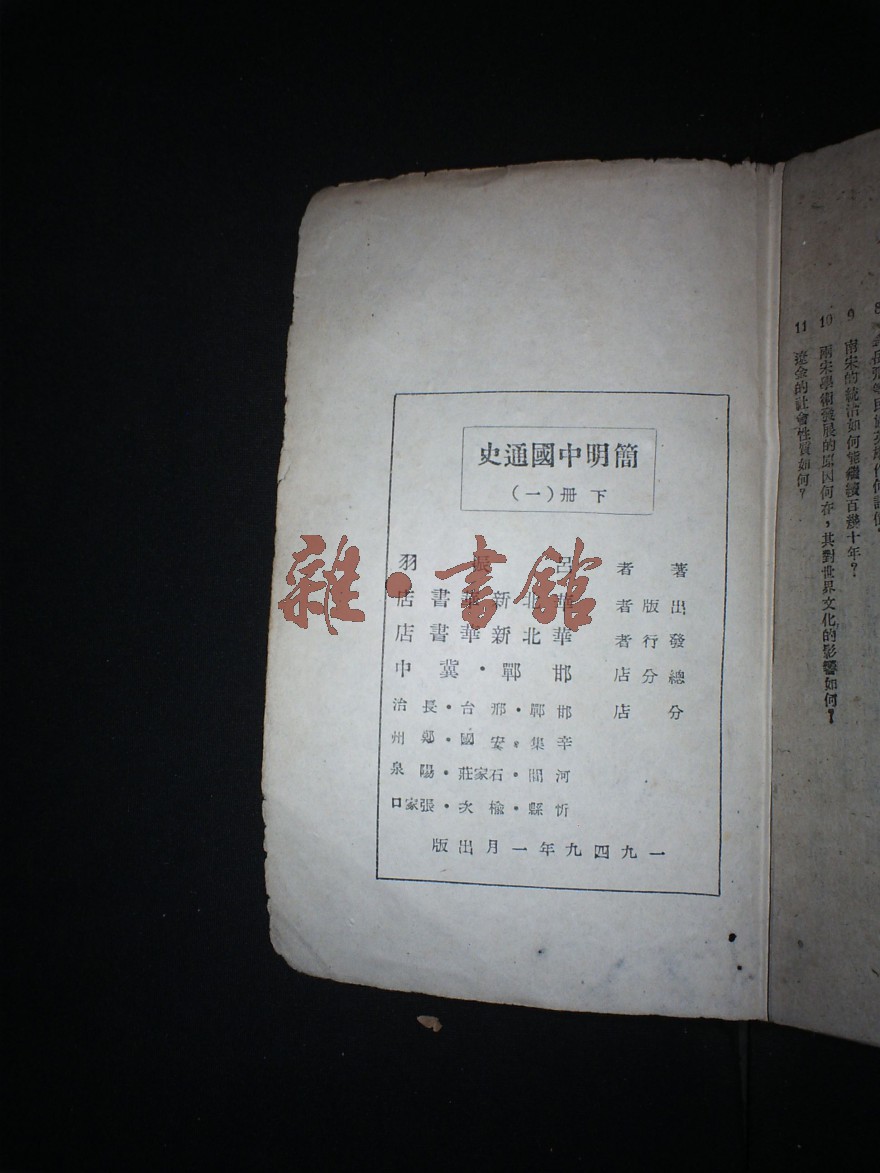 簡明中國通史
下冊(一)
著者 呂振羽
出版者 華北新華書店
發行者 華北新華書店
總分店 邯鄲·冀中
分店 邯鄲·邢台·長治
辛集·安國·鄭州
河間·石家莊·陽泉
忻縣·榆次·張家口
一九四九年一月出版
雜·書館
8
9 南宋的統治如何能繼續百幾十年?
10 兩宋學術發展的原因何在,其對世界文化的影響如何?
11 遼金的社會性質如何?